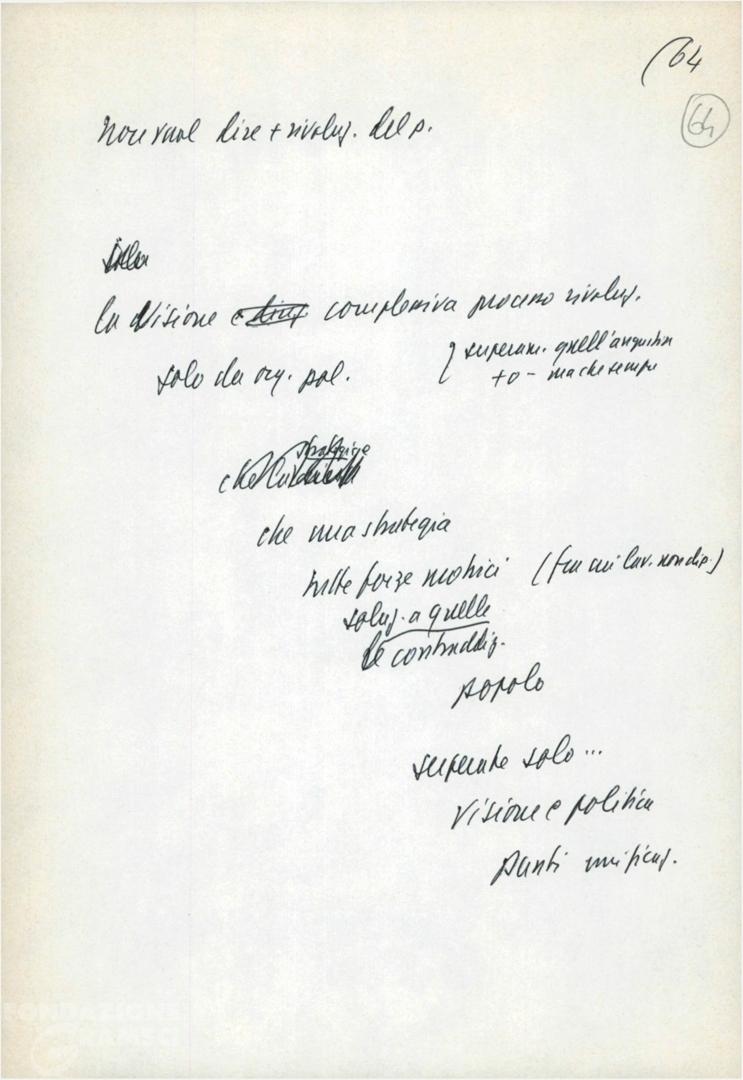 (64
64
Non vuol dire + rivoluz. del p.
la Visione e complessiva processo rivoluz.
solo da org. pol.
superam. quell'angustia
+ o - ma che sempre
strategia
che
che una strategia
tutte forze motrici (fra cui lav. non dip.)
soluz. a quelle
le contraddiz.
popolo
superate solo...
Visione e politica
punti unificaz.
FONDAZIONE
GRAMSCI